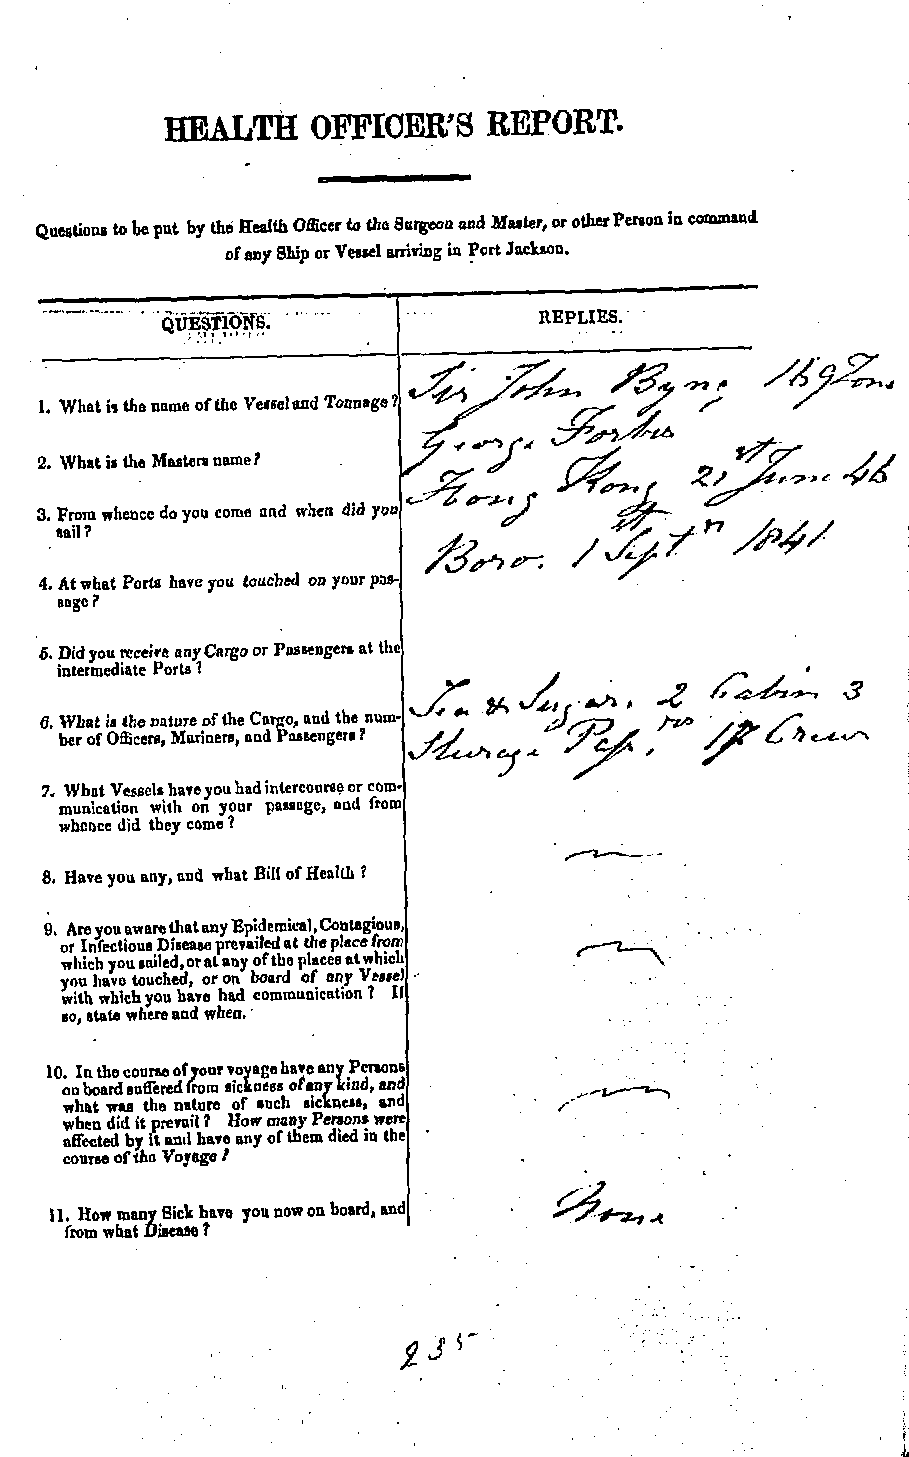 HEALTH OFFICER'S REPORT.
Questions to be put by the Health Officer to the Surgeon and Master, or other Person in command
of any Ship or Vessel arriving in Port Jackson.
QUESTIONS.
REPLIES.
1. What is the name of the Vessel and Tonnage?
Sir John Byng 169 Tons
2. What is the Masters name?
George Forbes
3. From whence do you come and when did you
sail?
Hong Kong 21st June 46
4. At what Ports have you touched on your pas-
sage?
1st Sept 1841
5. Did you receive any Cargo or Passengers at the
intermediate Ports?
6. What is the nature of the Cargo, and the num-
ber of Officers, Mariners, and Passengers?
Tea & Sugar. 2 Cabin 3
Steerage Passrs. 17 Crew
7. What Vessels have you had intercourse or com-
munication with on your passage, and from
whence did they come?
8. Have you any, and what Bill of Health?
9. Are you aware that any Epidemical, Contagious,
or Infectious Disease prevailed at the place from
which you sailed, or at any of the places at which
you have touched, or on board of any Vessel
with which you have had communication? If
so, state where and when.
10. In the course of your voyage have any Persons
on board suffered from sickness of any kind, and
what was the nature of such sickness, and
when did it prevail? How many Persons were
affected by it and have any of them died in the
course of the Voyage?
11. How many Sick have you now on board, and
from what Disease?
None
235